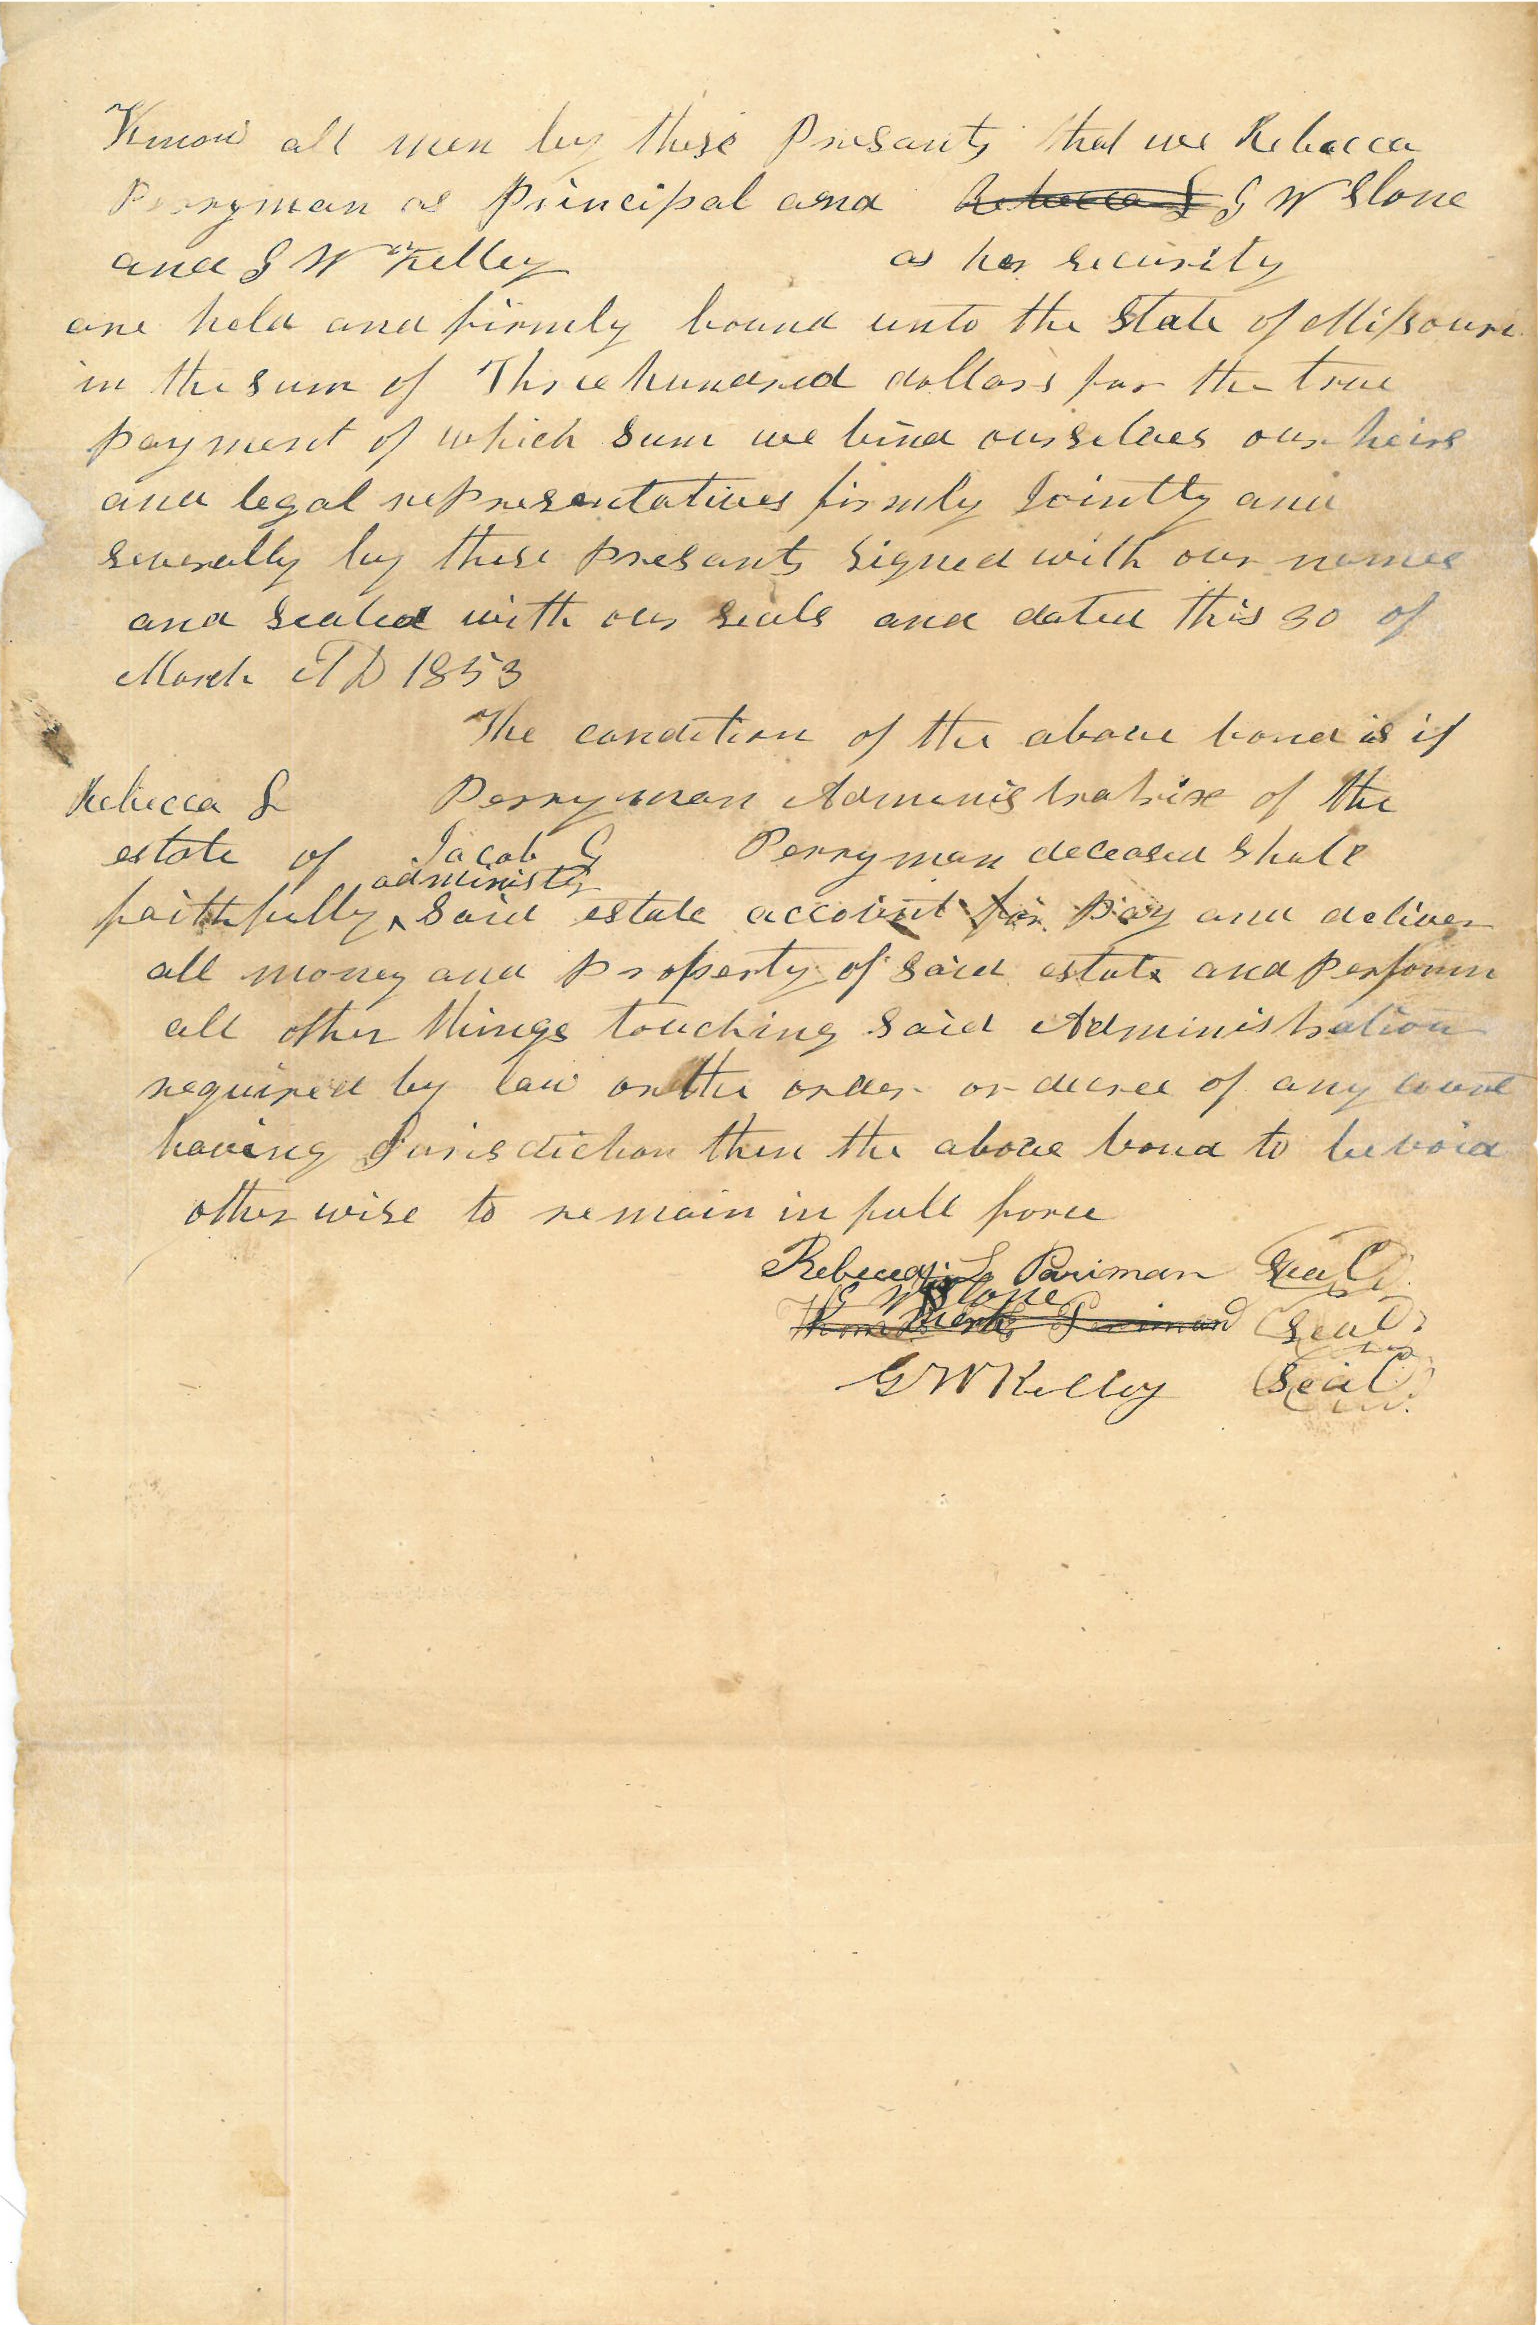 Know all men by these Presants that we Rebecca
Perryman as Principal and Rebecca L G W Slone
and G W Kelley as her security
are held and firmly bound unto the State of Missouri
in the sum of Three hundred dollars for the true
payment of which sum we bind ourselves our heirs
and legal representatives firmly Jointly and
severally by these presants signed with our names
and sealed with our seals and dated this 30 of
March AD 1853
The condition of the above bond is if
Rebecca L Perryman Administratrix of the
estate of Jacob G Perryman deceased shall
administer
faithfully ^ said estate account for pay and deliver
all money and property of said estate and perform
all other things touching said Administration
required by law or the order or decree of any court
having Jurisdiction then the above bond to be void
other wise to remain in full force
Rebecca L Pariman Seal
G W Slone
Seal
G W Kelley Seal